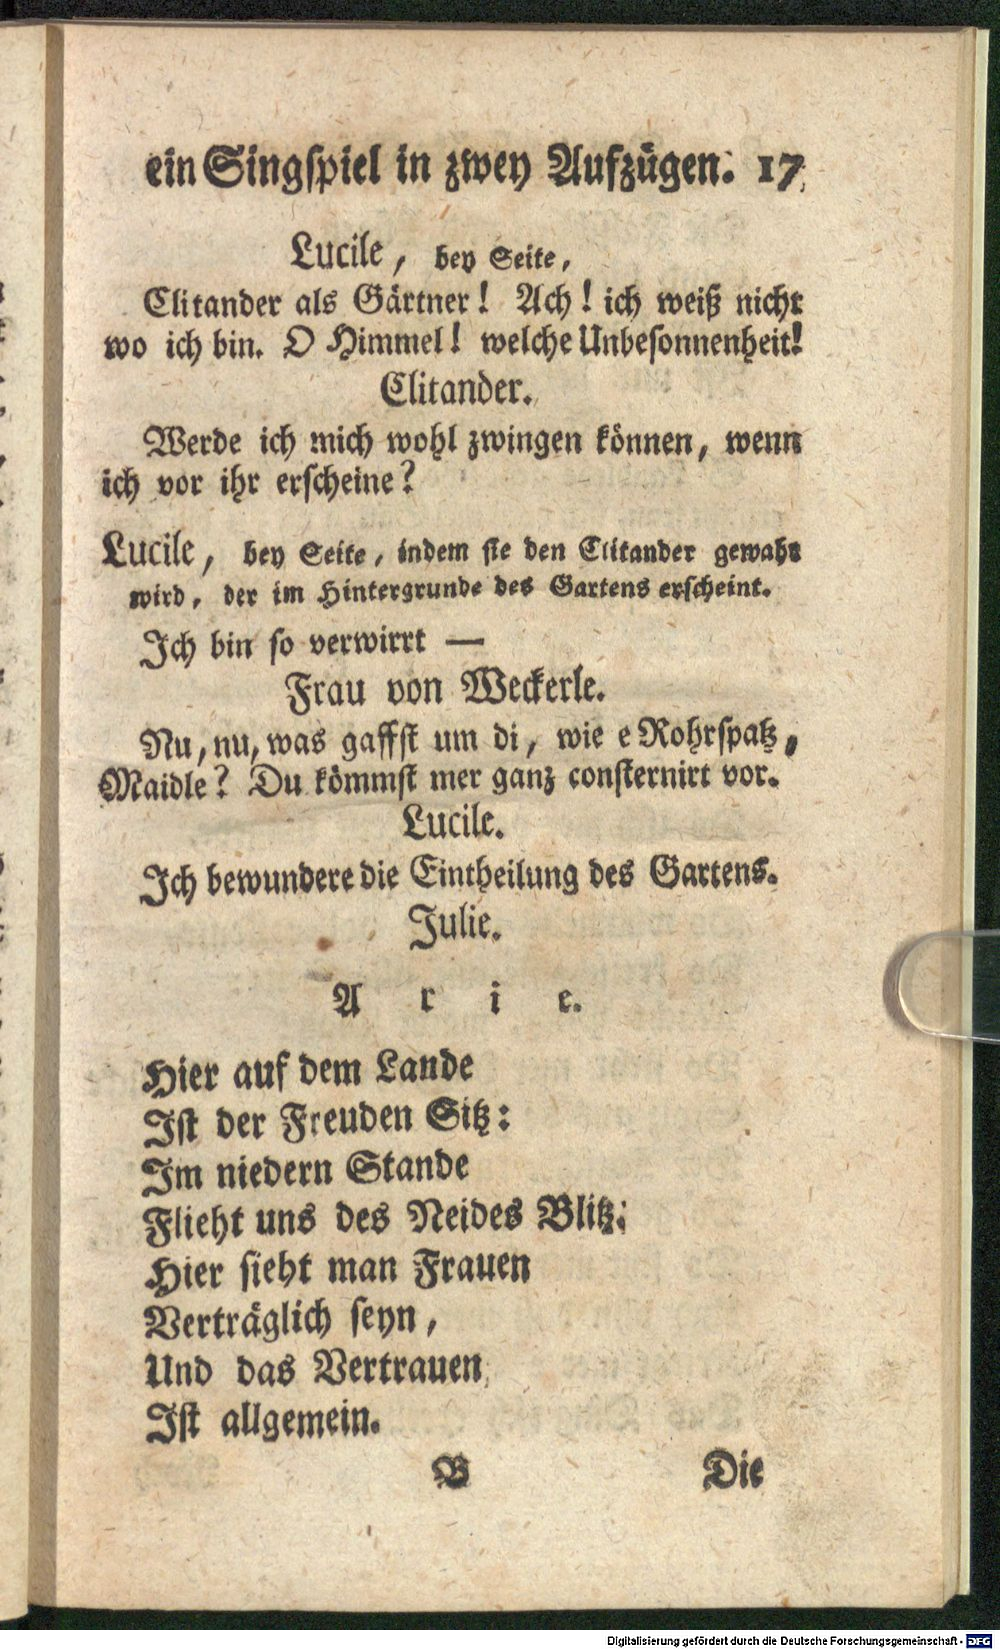 ein Singspiel in zwey Aufzügen. 17
Lucile, bey Seite,
Clitander als Gärtner! Ach! ich weiß nicht
wo ich bin. O Himmel! welche Unbesonnenheit!
Clitander.
Werde ich mich wohl zwingen können, wenn
ich vor ihr erscheine?
Lucile, bey Seite, indem sie den Clitander gewahr
wird, der im Hintergrunde des Gartens erscheint.
Ich bin so verwirrt —
Frau von Weckerle.
Nu, nu, was gaffst um di, wie e Rohrspatz,
Maidle? Du kömmst mer ganz consternirt vor.
Lucile.
Ich bewundere die Eintheilung des Gartens.
Julie.
A r i e.
Hier auf dem Lande
Ist der Freuden Sitz:
Im niedern Stande
Flieht uns des Neides Blitz;
Hier sieht man Frauen
Verträglich seyn,
Und das Vertrauen
Ist allgemein.
B Die
Digitalisierung gefördert durch die Deutsche Forschungsgemeinschaft - DFG